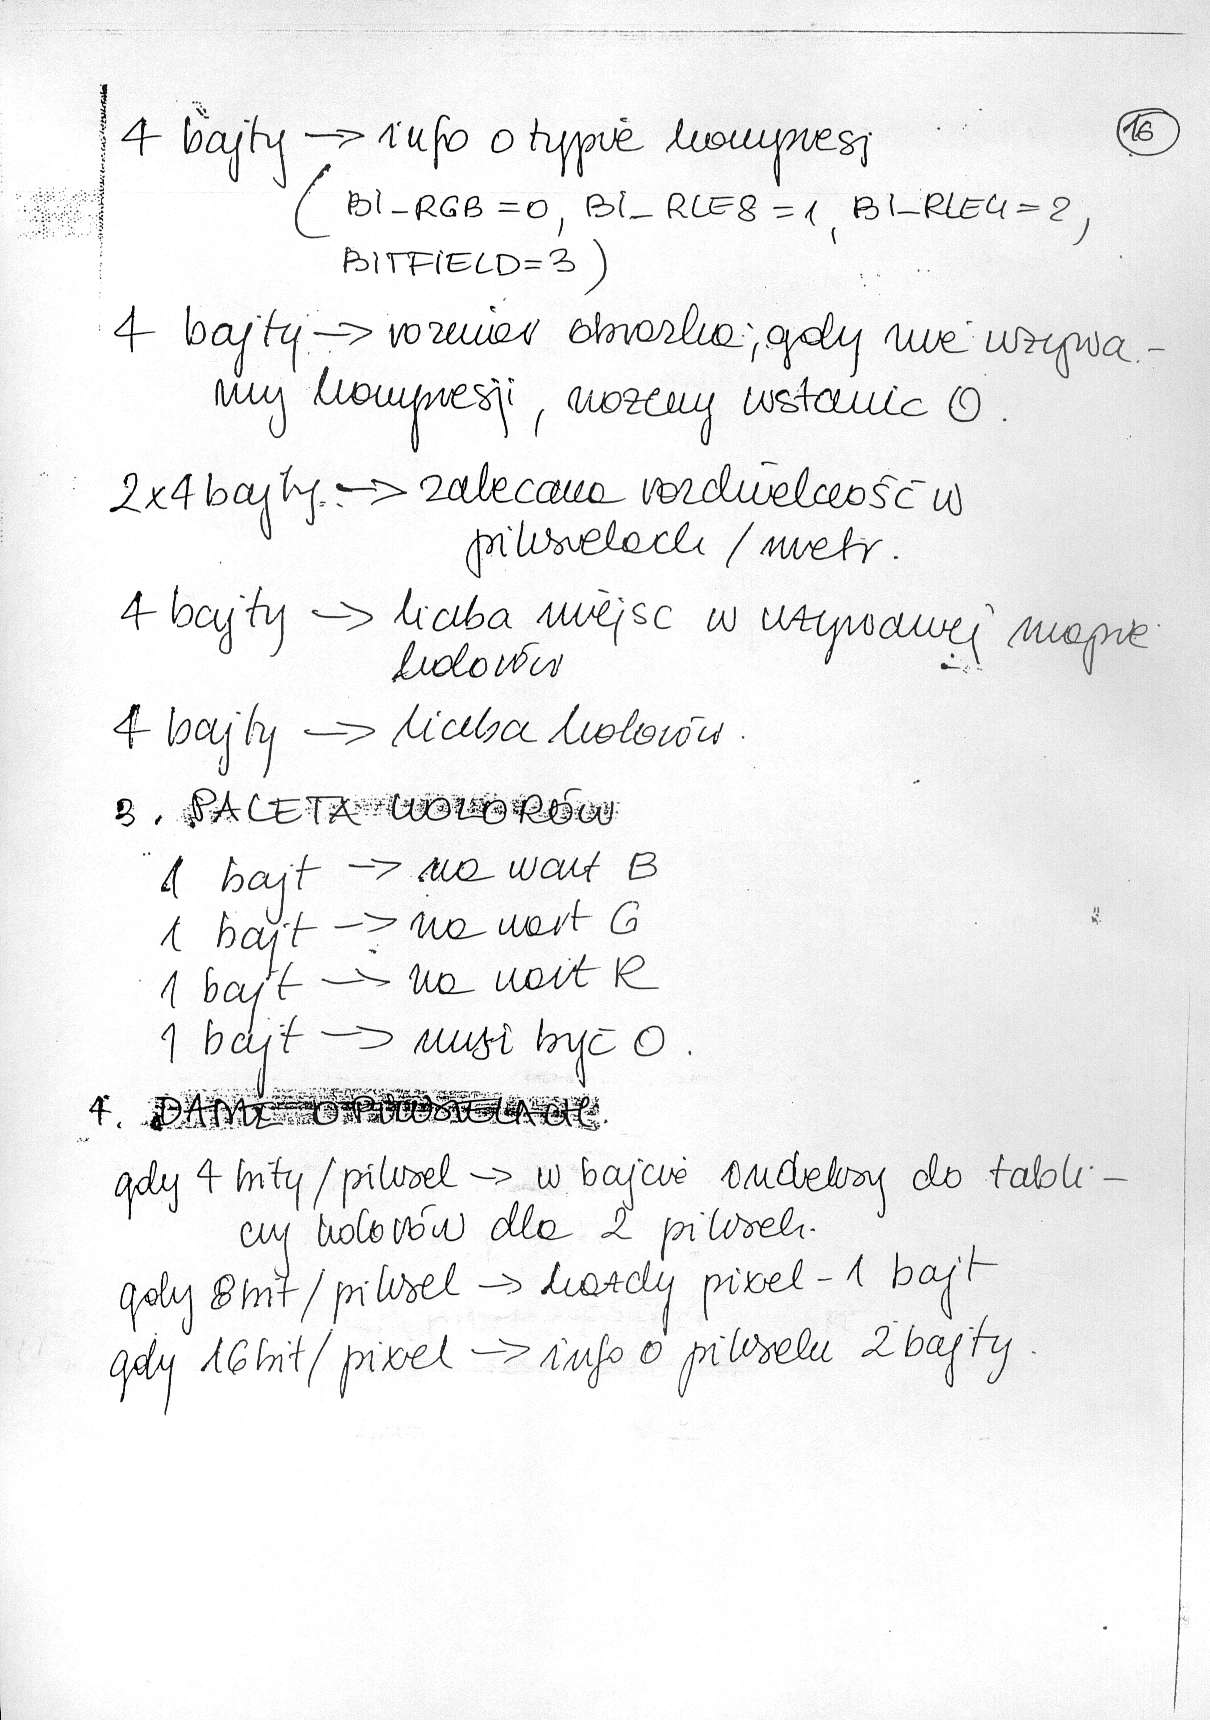 16
4 bajty → info o typie kompresj
(BI_RGB = 0, BI_RLE8 = 1, BI_RLE4 = 2,
BITFIELD = 3)
4 bajty → rozmiar obrazka; gdy nie używa-
my kompresji, możemy wstawić 0.
2x4 bajty → zalecana rozdzielczość w
pikselach / metr.
4 bajty → liczba miejsc w używanej mapie
kolorów
4 bajty → liczba kolorów.
3. PALETA KOLORÓW
1 bajt → na wart B
1 bajt → na wart G
1 bajt → na wart R
1 bajt → musi być 0.
4. DANE O PIKSELACH.
gdy 4 bity / piksel → w bajcie indeksy do tabli-
cy kolorów dla 2 pikseli.
gdy 8 bit / piksel → każdy pixel - 1 bajt
gdy 16 bit / pixel → info o pikselu 2 bajty.